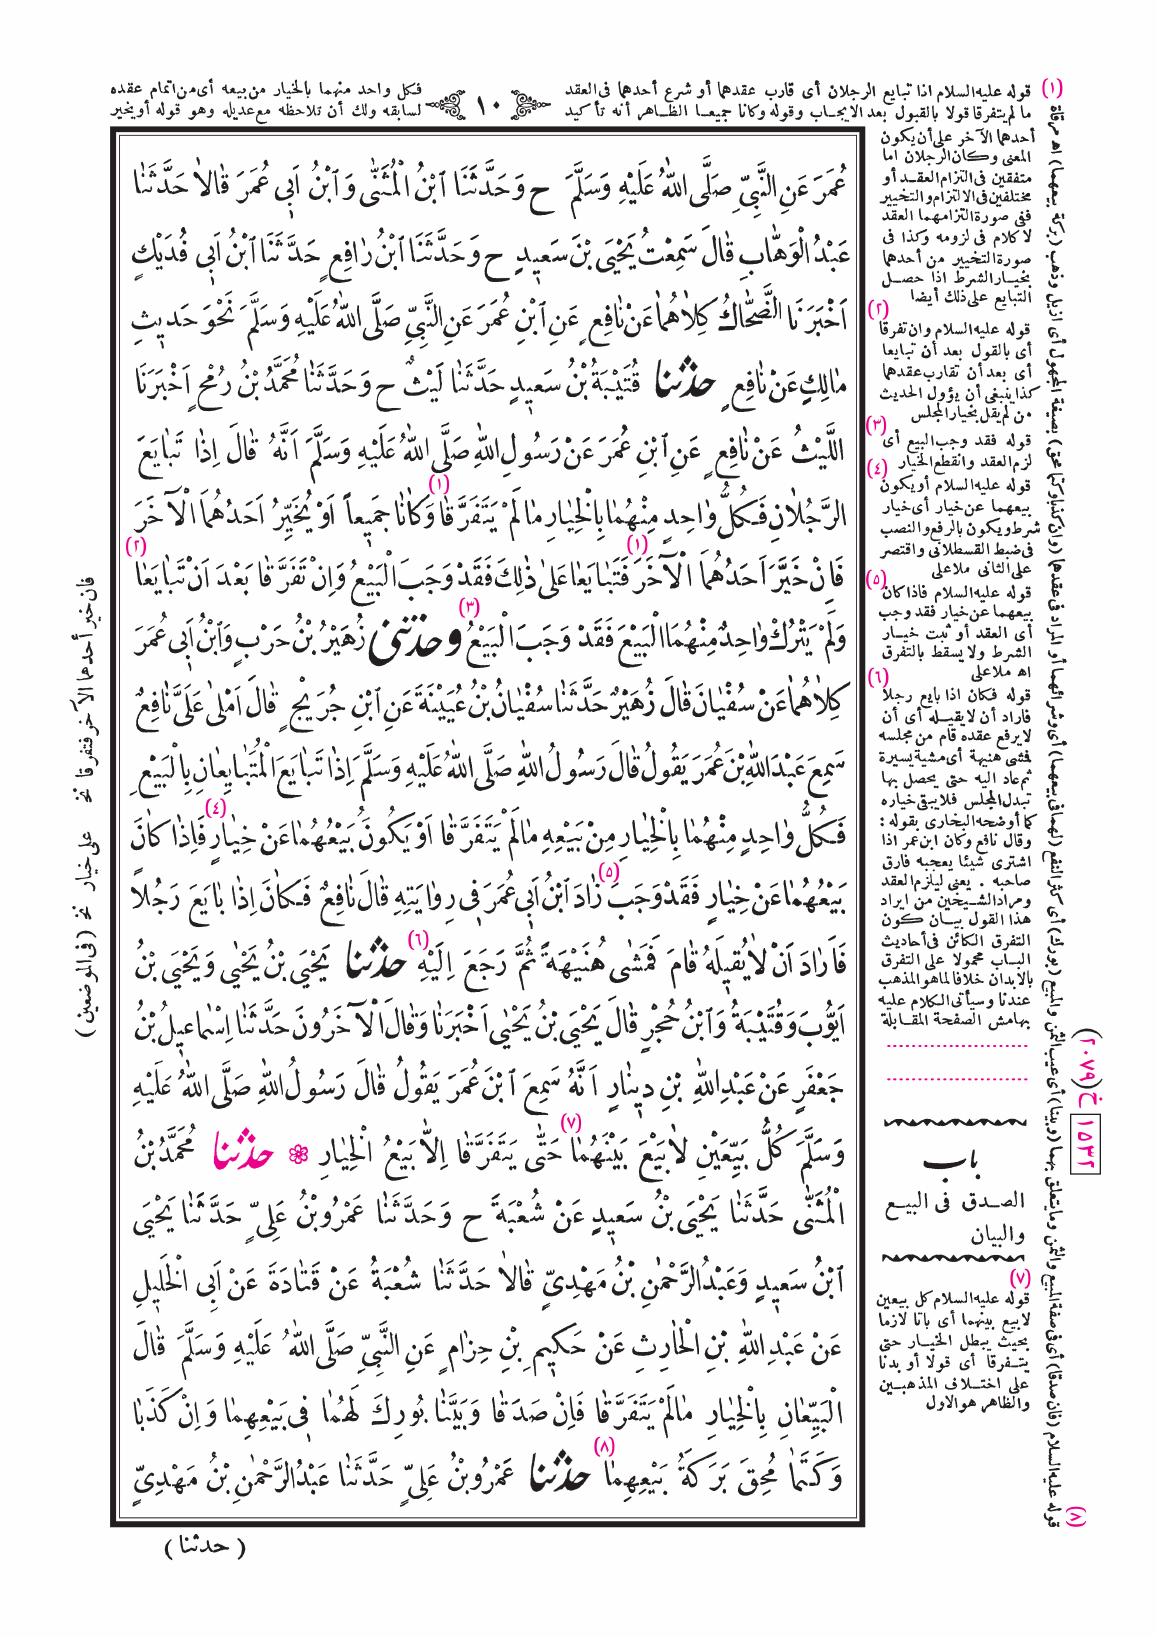 (١) قوله عليه السلام اذا تبايع الرجلان أى قارب عقدهما أو شرع أحدهما فى العقد
ما لم يتفرقا قولا بالقبول بعد الايجاب وقوله وكانا جميعا الظاهر أنه تأكيد
١٠
فكل واحد منهما بالخيار من بيعه أى من اتمام عقده
لسابقه ولك أن تلاحظه مع عديله وهو قوله أو يخير
أحدهما الآخر على أن يكون
المعنى وكان الرجلان اما
متفقين فى التزام العقد أو
مختلفين فى الالتزام والتخيير
ففى صورة التزامهما العقد
لا كلام فى لزومه وكذا فى
صورة التخيير من أحدهما
بخيار الشرط اذا حصل
التبايع على ذلك أيضا
(٢)
قوله عليه السلام وان تفرقا
أى بالقول بعد أن تبايعا
أى بعد أن تقارب عقدهما
كذا ينبغى أن يؤول الحديث
من لم يقل بخيار المجلس
(٣)
قوله فقد وجب البيع أى
لزم العقد وانقطع الخيار
(٤)
قوله عليه السلام أو يكون
بيعهما عن خيار أى خيار
شرط ويكون بالرفع والنصب
فى ضبط القسطلانى واقتصر
على الثانى ملا على
(٥)
قوله عليه السلام فاذا كان
بيعهما عن خيار فقد وجب
أى العقد أو ثبت خيار
الشرط ولا يسقط بالتفرق
اه ملا على
(٦)
قوله فكان اذا بايع رجلا
فاراد أن لا يقيله أى أن
لا يرفع عقده قام من مجلسه
فمشى هنيهة أى مشية يسيرة
ثم عاد اليه حتى يحصل بها
تبدل المجلس فلا يبقى خياره
كما أوضحه البخارى بقوله :
وقال نافع وكان ابن عمر اذا
اشترى شيئا يعجبه فارق
صاحبه . يعنى ليلزم العقد
ومراد الشيخين من ايراد
هذا القول بيان كون
التفرق الكائن فى أحاديث
الباب محمولا على التفرق
بالابدان خلافا لما هو المذهب
عندنا وسيأتى الكلام عليه
بهامش الصفحة المقابلة
باب
الصدق فى البيع
والبيان
(٧)
قوله عليه السلام كل بيعين
لا بيع بينهما أى باتا لازما
بحيث يبطل الخيار حتى
يتفرقا أى قولا أو بدنا
على اختلاف المذهبين
والظاهر هو الاول
(٨) قوله عليه السلام (فان صدقا) أى فى صفة المبيع والثمن وما يتعلق بهما (وبينا) أى عيب الثمن والمبيع (بورك) أى كثر النفع (لهما فى بيعهما) أى وشرائهما أو المراد فى عقدهما (وان كذبا وكتما محق) بصيغة المجهول أى ازيل وذهب (بركة بيعهما) اه مرقاة
١٥٣٢ خ (٢٠٧٩)
عُمَرَ عَنِ النَّبِيِّ صَلَّى اللهُ عَلَيْهِ وَسَلَّمَ ح وَحَدَّثَنَا ابْنُ الْمُثَنّٰى وَابْنُ اَبِى عُمَرَ قٰالاٰ حَدَّثَنٰا
عَبْدُ الْوَهّٰابِ قٰالَ سَمِعْتُ يَحْيَى بْنَ سَعِيدٍ ح وَحَدَّثَنَا ابْنُ رٰافِعٍ حَدَّثَنَا ابْنُ اَبِى فُدَيْكٍ
اَخْبَرَنَا الضَّحّٰاكُ كِلاٰهُمٰا عَنْ نٰافِعٍ عَنِ ابْنِ عُمَرَ عَنِ النَّبِيِّ صَلَّى اللهُ عَلَيْهِ وَسَلَّمَ نَحْوَ حَدِيثِ
مٰالِكٍ عَنْ نٰافِعٍ حدثنا قُتَيْبَةُ بْنُ سَعِيدٍ حَدَّثَنٰا لَيْثٌ ح وَحَدَّثَنٰا مُحَمَّدُ بْنُ رُمْحٍ اَخْبَرَنَا
اللَّيْثُ عَنْ نٰافِعٍ عَنِ ابْنِ عُمَرَ عَنْ رَسُولِ اللهِ صَلَّى اللهُ عَلَيْهِ وَسَلَّمَ اَنَّهُ قٰالَ اِذٰا تَبٰايَعَ
الرَّجُلاٰنِ فَكُلُّ وٰاحِدٍ مِنْهُمٰا بِالْخِيٰارِ مٰا لَمْ يَتَفَرَّقٰا (١) وَكٰانٰا جَمِيعاً اَوْ يُخَيِّرُ اَحَدُهُمَا الْآخَرَ
فَاِنْ خَيَّرَ اَحَدُهُمَا الْآخَرَ (١) فَتَبٰايَعٰا عَلىٰ ذٰلِكَ فَقَدْ وَجَبَ الْبَيْعُ وَاِنْ تَفَرَّقٰا بَعْدَ اَنْ تَبٰايَعٰا (٢)
وَلَمْ يَتْرُكْ وٰاحِدٌ مِنْهُمَا الْبَيْعَ فَقَدْ وَجَبَ الْبَيْعُ (٣) وحدثنى زُهَيْرُ بْنُ حَرْبٍ وَابْنُ اَبِى عُمَرَ
كِلاٰهُمٰا عَنْ سُفْيٰانَ قٰالَ زُهَيْرٌ حَدَّثَنٰا سُفْيٰانُ بْنُ عُيَيْنَةَ عَنِ ابْنِ جُرَيْجٍ قٰالَ اَمْلىٰ عَلَىَّ نٰافِعٌ
سَمِعَ عَبْدَ اللهِ بْنَ عُمَرَ يَقُولُ قٰالَ رَسُولُ اللهِ صَلَّى اللهُ عَلَيْهِ وَسَلَّمَ اِذٰا تَبٰايَعَ الْمُتَبٰايِعٰانِ بِالْبَيْعِ
فَكُلُّ وٰاحِدٍ مِنْهُمٰا بِالْخِيٰارِ مِنْ بَيْعِهِ مٰا لَمْ يَتَفَرَّقٰا اَوْ يَكُونَُ بَيْعُهُمٰا عَنْ خِيٰارٍ (٤) فَاِذٰا كٰانَ
بَيْعُهُمٰا عَنْ خِيٰارٍ فَقَدْ وَجَبَ (٥) زٰادَ ابْنُ اَبِى عُمَرَ فِى رِوٰايَتِهِ قٰالَ نٰافِعٌ فَكٰانَ اِذٰا بٰايَعَ رَجُلاً
فَاَرٰادَ اَنْ لاٰ يُقِيلَهُ قٰامَ فَمَشٰى هُنَيْهَةً ثُمَّ رَجَعَ اِلَيْهِ (٦) حدثنا يَحْيَى بْنُ يَحْيٰى وَيَحْيَى بْنُ
اَيُّوبَ وَقُتَيْبَةُ وَابْنُ حُجْرٍ قٰالَ يَحْيَى بْنُ يَحْيٰى اَخْبَرَنٰا وَقٰالَ الْآخَرُونَ حَدَّثَنٰا اِسْمٰاعِيلُ بْنُ
جَعْفَرٍ عَنْ عَبْدِ اللهِ بْنِ دِينٰارٍ اَنَّهُ سَمِعَ ابْنَ عُمَرَ يَقُولُ قٰالَ رَسُولُ اللهِ صَلَّى اللهُ عَلَيْهِ
وَسَلَّمَ كُلُّ بَيِّعَيْنِ لاٰ بَيْعَ بَيْنَهُمٰا (٧) حَتّٰى يَتَفَرَّقٰا اِلاّٰ بَيْعُ الْخِيٰارِ ❁ حدثنا مُحَمَّدُ بْنُ
الْمُثَنّٰى حَدَّثَنٰا يَحْيَى بْنُ سَعِيدٍ عَنْ شُعْبَةَ ح وَحَدَّثَنٰا عَمْرُو بْنُ عَلِيٍّ حَدَّثَنٰا يَحْيَى
ابْنُ سَعِيدٍ وَعَبْدُ الرَّحْمٰنِ بْنُ مَهْدِيٍّ قٰالاٰ حَدَّثَنٰا شُعْبَةُ عَنْ قَتٰادَةَ عَنْ اَبِى الْخَلِيلِ
عَنْ عَبْدِ اللهِ بْنِ الْحٰارِثِ عَنْ حَكِيمِ بْنِ حِزٰامٍ عَنِ النَّبِيِّ صَلَّى اللهُ عَلَيْهِ وَسَلَّمَ قٰالَ
الْبَيِّعٰانِ بِالْخِيٰارِ مٰا لَمْ يَتَفَرَّقٰا فَاِنْ صَدَقٰا وَبَيَّنٰا بُورِكَ لَهُمٰا فِى بَيْعِهِمٰا وَاِنْ كَذَبٰا
وَكَتَمٰا مُحِقَ بَرَكَةُ بَيْعِهِمٰا (٨) حدثنا عَمْرُو بْنُ عَلِيٍّ حَدَّثَنٰا عَبْدُ الرَّحْمٰنِ بْنُ مَهْدِيٍّ
فان خير أحدهما الآخر فتفرقا نخ
على خيار نخ (فى الموضعين)
(حدثنا)